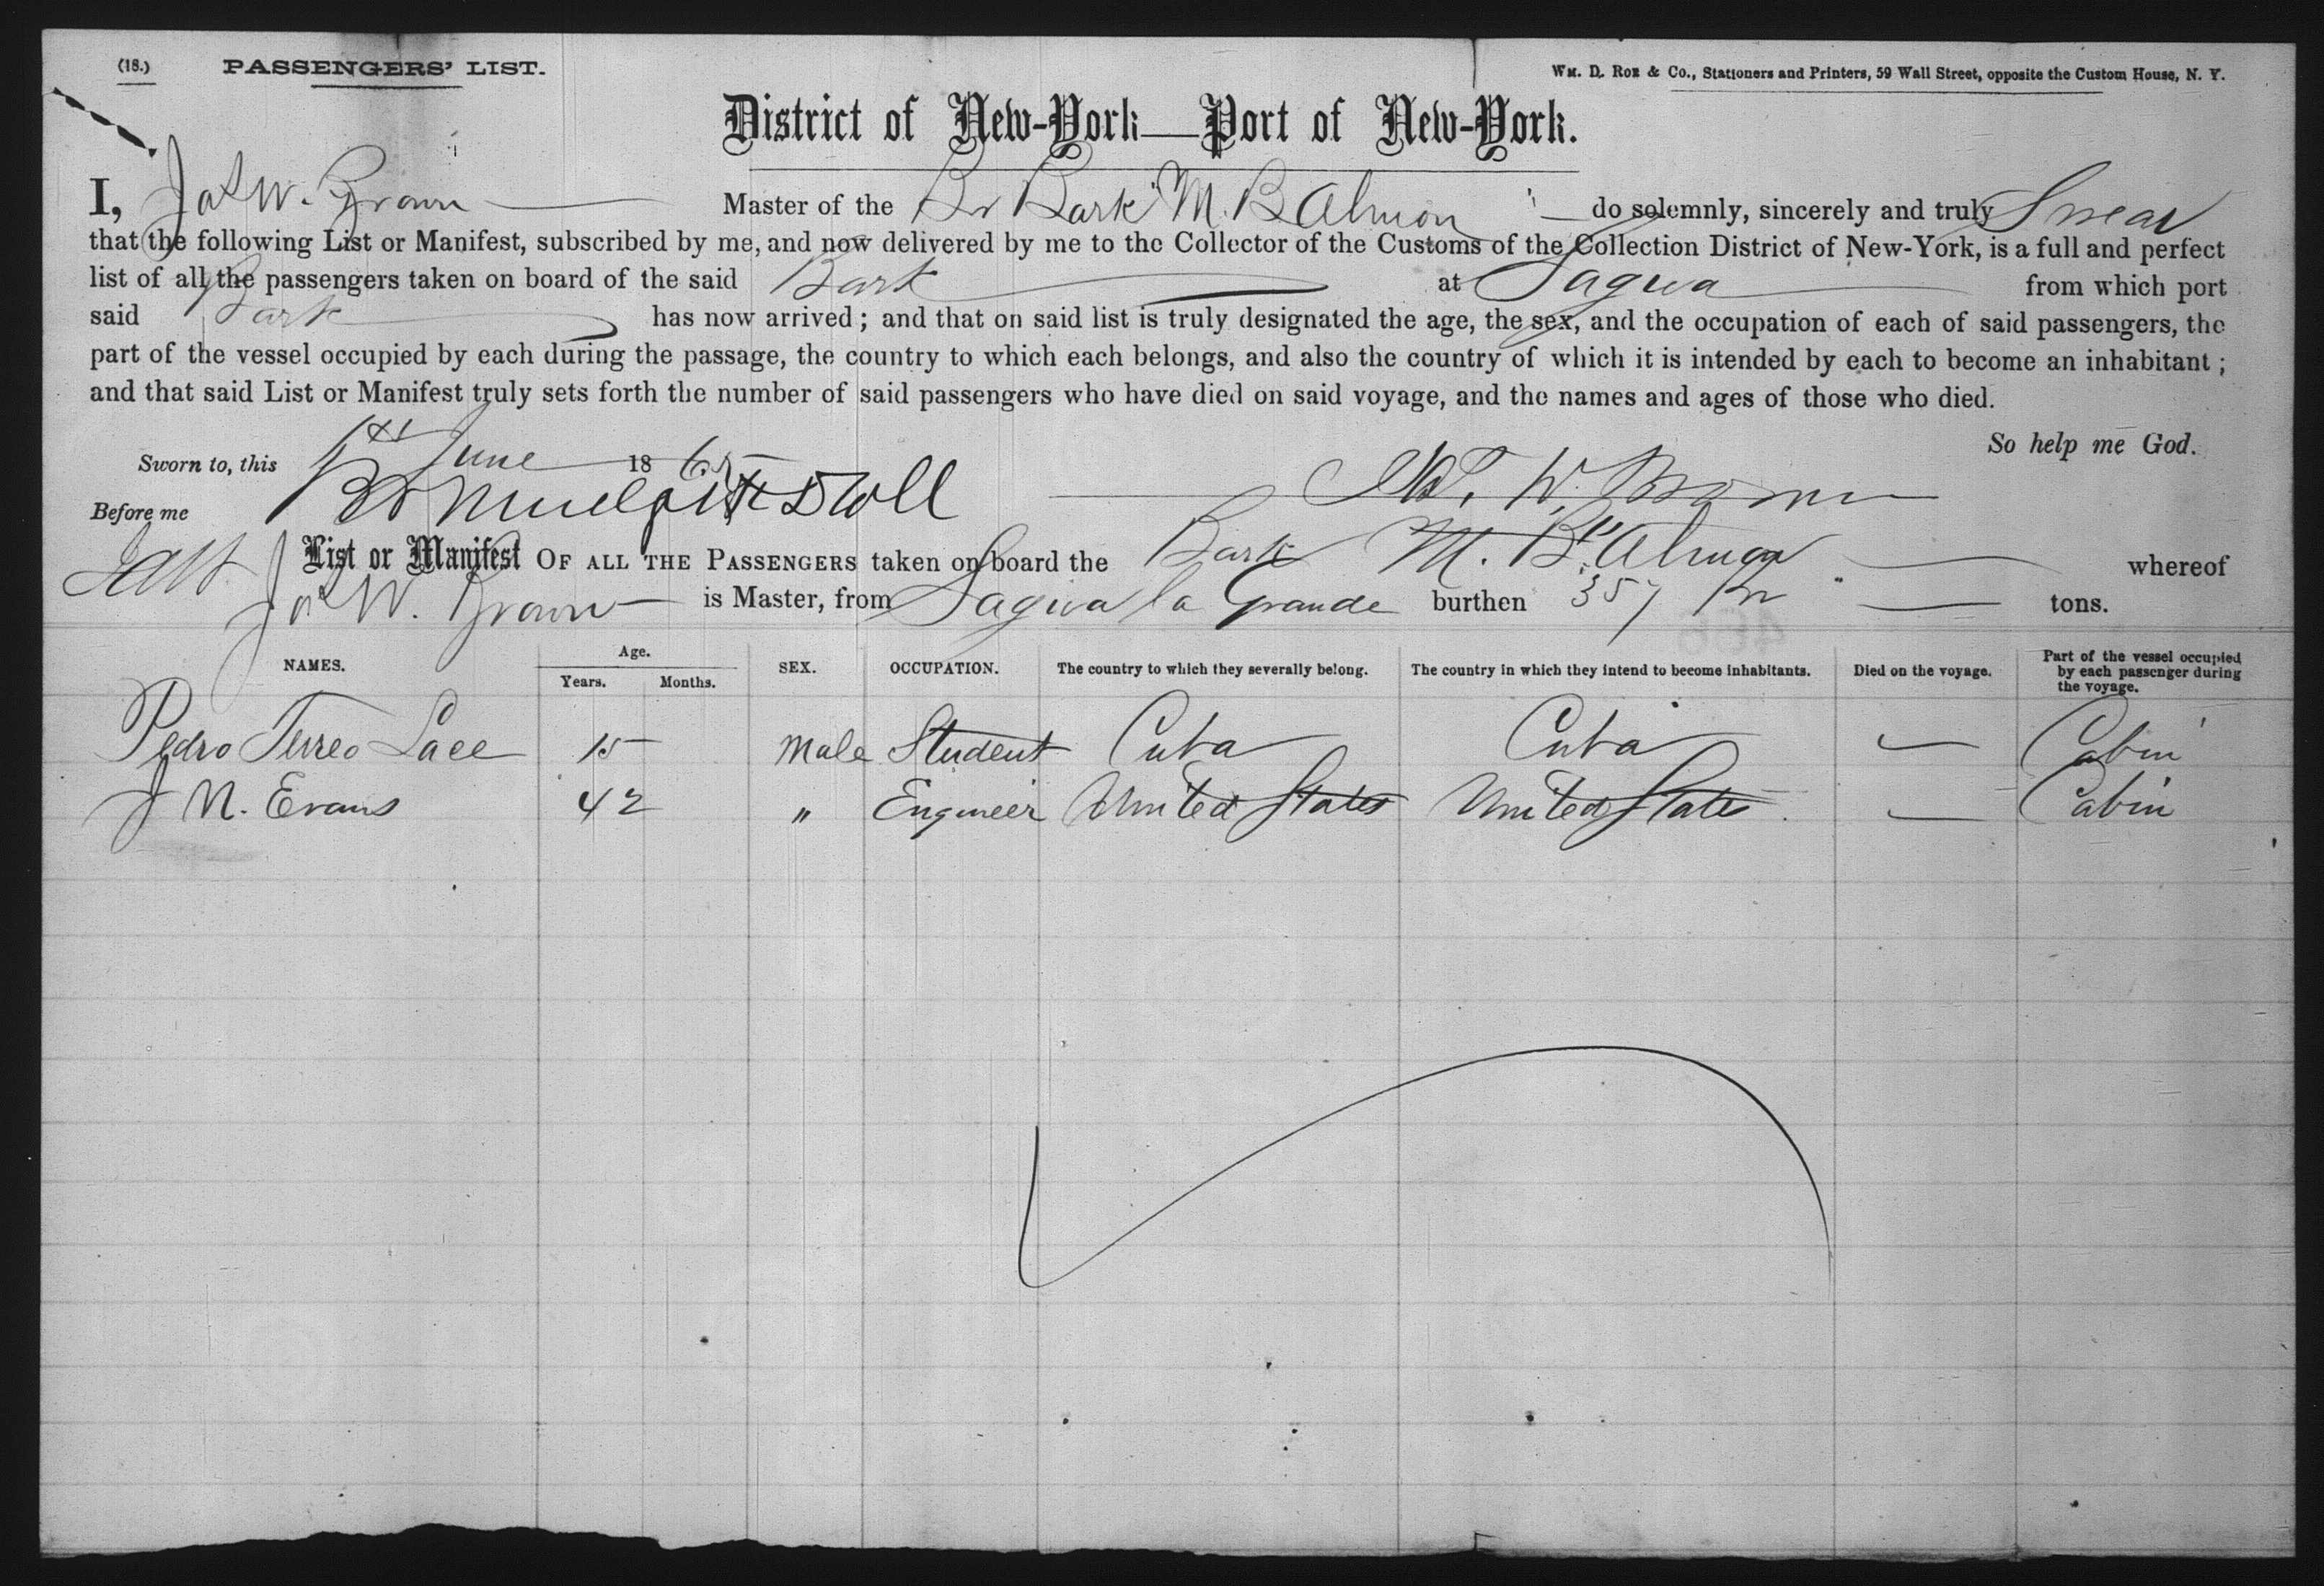 (18.) PASSENGERS' LIST. Wm. D. Roe & Co., Stationers and Printers, 59 Wall Street, opposite the Custom House, N. Y.
District of New-York—Port of New-York.
I, Jas W. Brown Master of the Br Bark "M. B Almon" do solemnly, sincerely and truly Swear
that the following List or Manifest, subscribed by me, and now delivered by me to the Collector of the Customs of the Collection District of New-York, is a full and perfect
list of all the passengers taken on board of the said Bark at Sagua from which port
said Bark has now arrived; and that on said list is truly designated the age, the sex, and the occupation of each of said passengers, the
part of the vessel occupied by each during the passage, the country to which each belongs, and also the country of which it is intended by each to become an inhabitant;
and that said List or Manifest truly sets forth the number of said passengers who have died on said voyage, and the names and ages of those who died.
So help me God.
Sworn to, this June 1865 Jas. W. Brown
Before me
List or Manifest OF ALL THE PASSENGERS taken on board the Bark M. B. Almon whereof
Jas W. Brown is Master, from Sagua la Grande burthen 357 tons.
NAMES. Age. Years. Months. SEX. OCCUPATION. The country to which they severally belong. The country in which they intend to become inhabitants. Died on the voyage. Part of the vessel occupied by each passenger during the voyage.
Pedro Terreo Lace 15 Male Student Cuba Cuba — Cabin
J N. Evans 42 " Engineer United States United States — Cabin